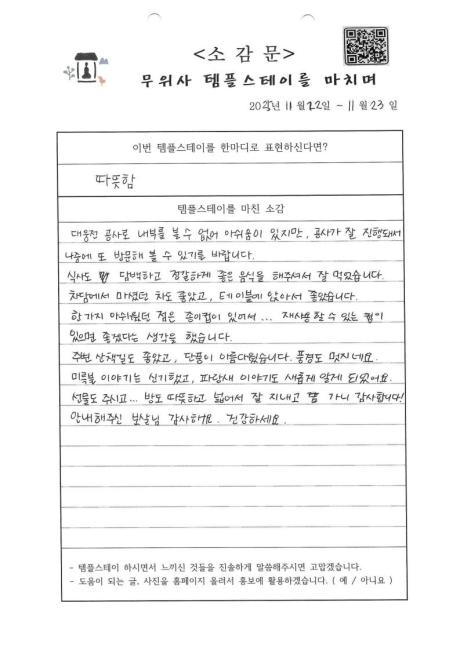 <소감문>
무위사 템플스테이를 마치며
2025년 11월 22일 ~ 11월 23일
이번 템플스테이를 한마디로 표현하신다면?
따뜻함
템플스테이를 마친 소감
대웅전 공사로 내부를 볼 수 없어 아쉬움이 있지만, 공사가 잘 진행돼서
나중에 또 방문해 볼 수 있기를 바랍니다.
식사도 담백하고 정갈하게 좋은 음식을 해주셔서 잘 먹었습니다.
차담에서 마셨던 차도 좋았고, 테이블에 앉아서 좋았습니다.
한가지 아쉬웠던 점은 종이컵이 있어서... 재사용할 수 있는 컵이
있으면 좋겠다는 생각을 했습니다.
주변 산책길도 좋았고, 단풍이 아름다웠습니다. 풍경도 멋지네요.
미륵불 이야기는 신기했고, 파랑새 이야기도 새롭게 알게 되었어요.
선물도 주시고... 방도 따뜻하고 넓어서 잘 지내고 가니 감사합니다!
안내해주신 보살님 감사해요. 건강하세요.
- 템플스테이 하시면서 느끼신 것들을 진솔하게 말씀해주시면 고맙겠습니다.
- 도움이 되는 글, 사진을 홈페이지 올려서 홍보에 활용하겠습니다. ( 예 / 아니요 )